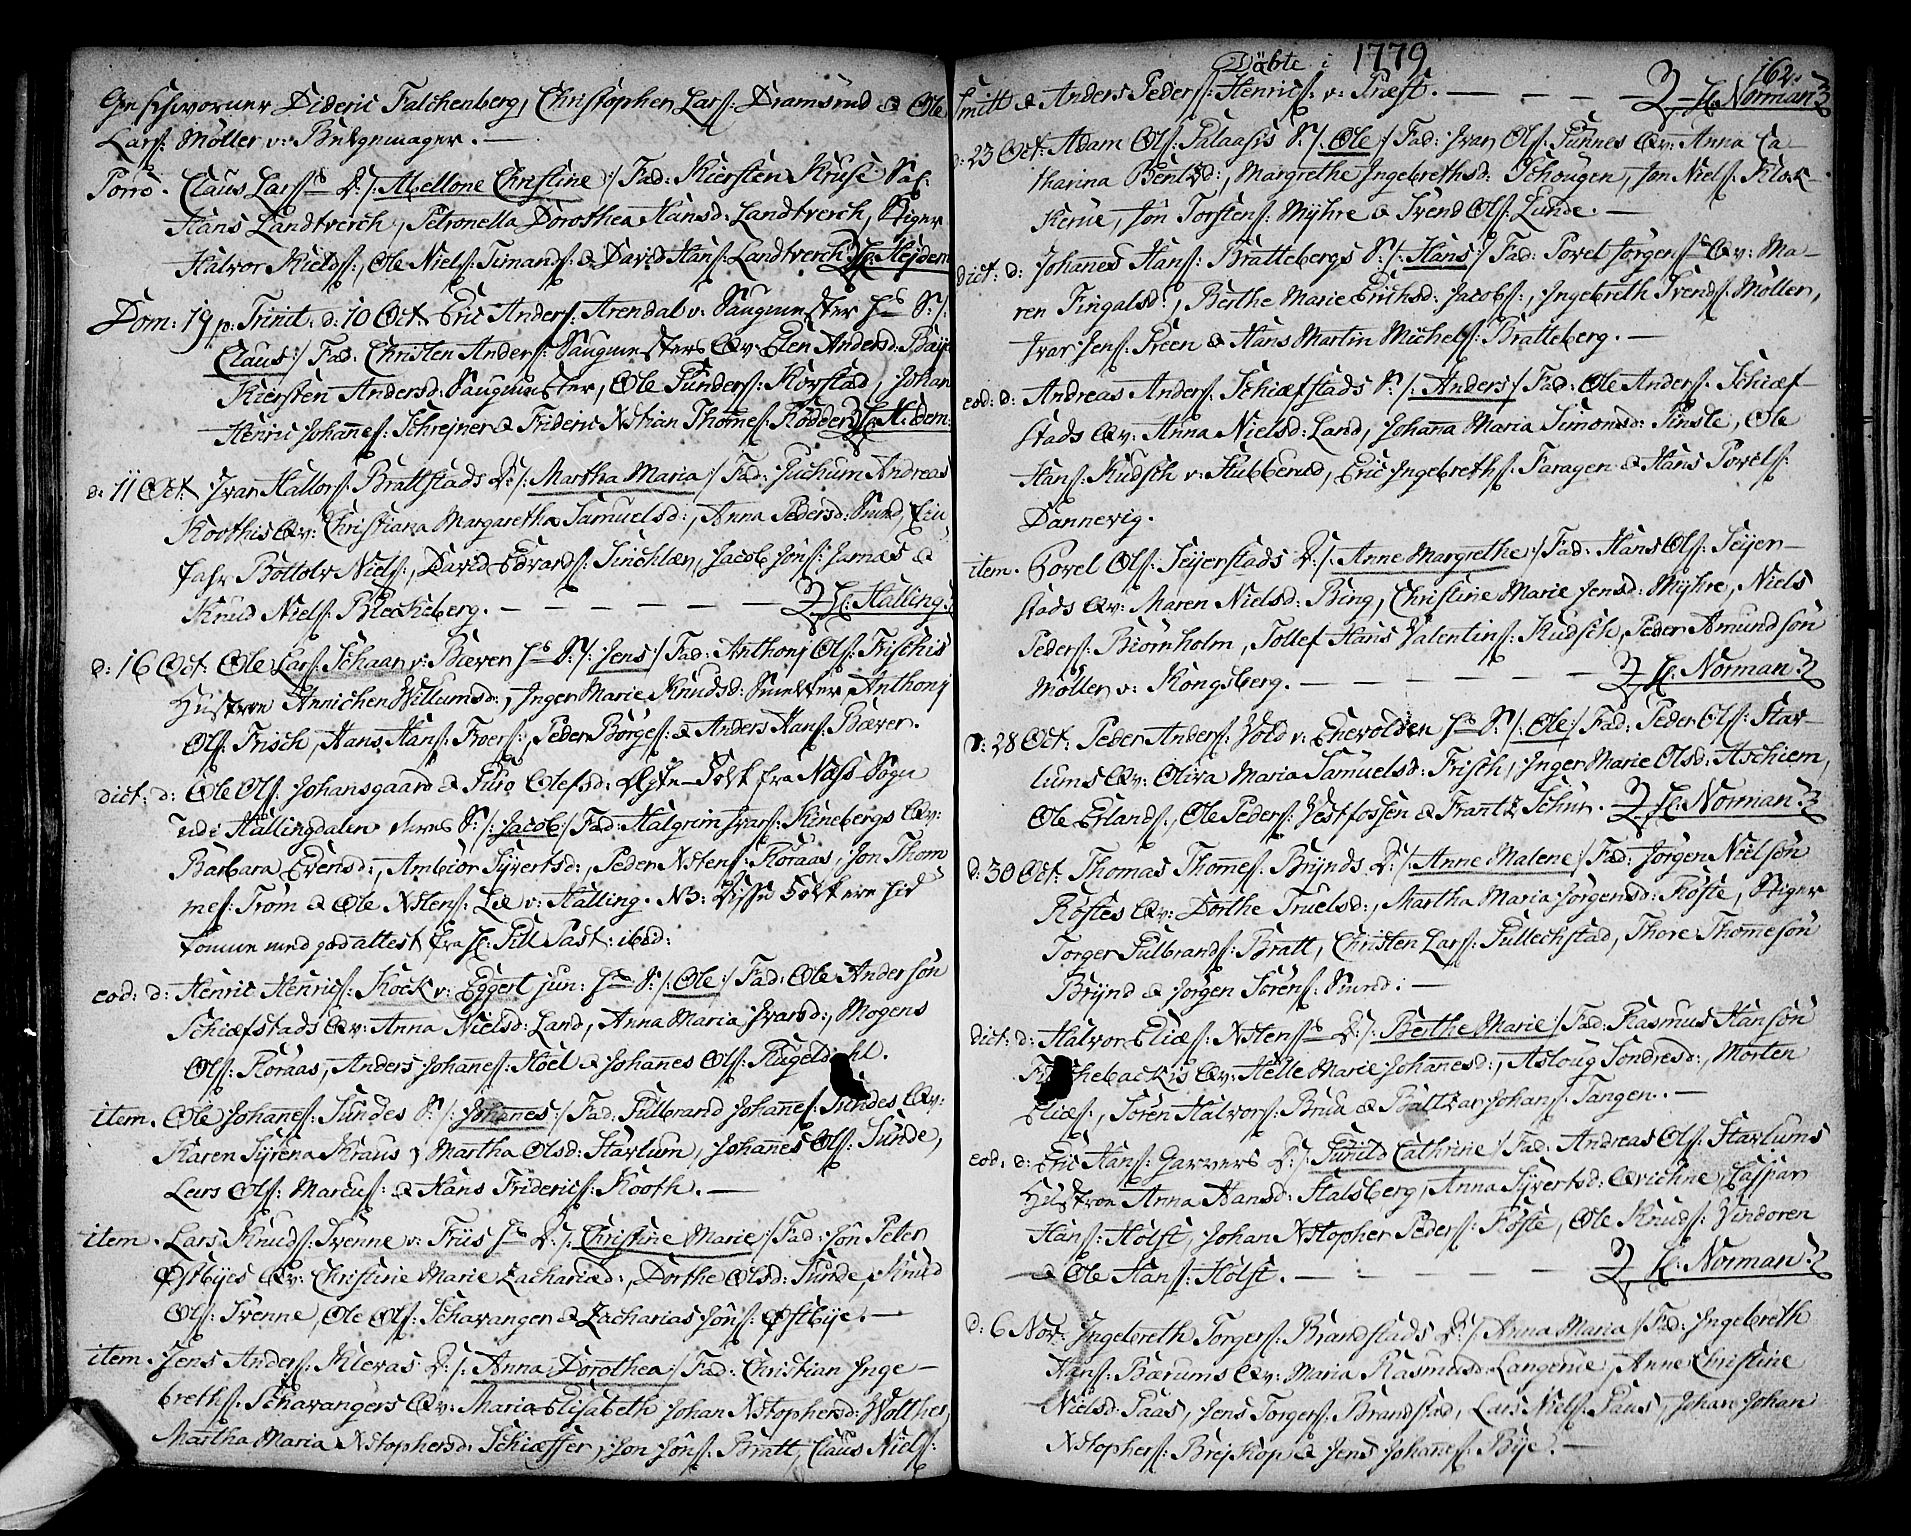 Geschworner Dideric Falchenberg, Christopher Lars: Dramsrud & Ole
Lars: Møller v: Belgemager. —
Porro. Claus Lars: D:/: Mellone Christine :/ Fad: Kiersten Kruse Sal:
Hans Landtverch, Petronella Dorothea Hansd: Landtverch, Stiger
Halvor Kields:, Ole Niels: Simands: & David Hans: Landtverch H: Heydem
Dom: 19 p: Trinit: d: 10 Oct: Eric Anders: Arendal v: Saugmester hs S:/:
Claus :/ Fad: Christen Anders: Saugmesters Qv: Elen Andersd: Bay
Kiersten Andersd: Saugmester, Ole Gunders: Korstad, Johan
Henric Johannes: Schrejner & Frideric Xstian Thomes: Fodder H: Hidem
d: 11 Oct: Ivar Hallors: Brattstads D:/: Martha Maria :/ Fad: Juchum Andreas
Koothis Qv: Christiana Margaretha Samuelsd:, Anna Pedersd: Smud,
Jahr Bottolv Niels:, David Edvards: Sinchlær, Jacob Jons: Jarnæs &
Knud Niels: Bleckeberg. — — — — — — H: Halling
d: 16 Oct: Ole Lars: Schaar v: Bæver hs S:/: Jens :/ Fad: Anthonj Ols: Frischis
Hustroe Annichen Willumsd:, Inger Marie Knudsd: Smelter, Anthonj
Ols: Frisch, Hans Hans: Foers:, Peder Børges: & Anders Hans: Bæver.
dict: d: Ole Ols: Johansgaard & Guro Olefsd: Ægte-Folk fra Næss Sogn
udi Hallingdalen deres S:/: Jacob :/ Fad: Halgrim Ivars: Kinebergs Qv:
Barbara Evensd:, Ambiør Syvertsd:, Peder Xstens: Floraas, Jon Thom
mes: Trom & Ole Xstens: Lie v: Halling. NB: Disse Folk ere hid
komne med god attest fra H: Pill Past: ibid:
eod: d: Henric Henrics: Kock v: Eggert jun: hs S:/: Ole :/ Fad: Ole Andersøn
Schiæfstads Qv: Anna Nielsd: Land, Anna Maria Ivarsd:, Mogens
Ols: Floraas, Anders Johannes: Hoel & Johannes Ols: Kugeldahl.
item. Ole Johanes: Sundes S:/: Johanes :/ Fad: Gulbrand Johanes: Sundes Qv:
Karen Syrena Kraus, Martha Olsd: Starlum, Johannes Ols: Sunde,
Lars Ols: Marcus: & Hans Friderics: Kooth. —
item. Lars Knuds: Svenne v: Friis hs D:/: Christine Marie :/ Fad: Jon Peter
Østbyes Qv: Christine Marie Zachariæd:, Dorthe Olsd: Sunde, Knud
Ols: Svenne, Ole Ols: Schavanger & Zacharias Jøns: Østbye. —
item. Jens Anders: Klevas D:/: Anna Dorothea :/ Fad: Christian Inge-
breths: Schavangers Qv: Maria Elisabeth Johan Xstophersd: Wolther,
Martha Maria Xstophersd: Schiæffer, Jon Jøns: Bratt, Claus Niels:
Døbte i 1779 162.
Smitt & Anders Peders: Henrics: v: Præst. — — — — H: Norman
d: 23 Oct: Adam Ols: Palaasis S:/: Ole :/ Fad: Ivar Ols: Funnes Qv: Anna Ca-
tharina Bentzd:, Margrethe Ingebrethsd: Schougen, Jon Niels: Klok-
kerue, Jon Torstens: Myhre & Svend Ols: Lunde. —
dict: d: Johannes Hans: Brattebergs S:/: Hans :/ Fad: Povel Jørgens: Qv: Ma-
ren Fingalsd:, Berthe Marie Erichsd: Jacobs:, Ingebreth Svends: Møller,
Ivar Jens: Preen & Hans Martin Michels: Bratteberg. —
eod: d: Andreas Anders: Schiæfstads S:/: Anders :/ Fad: Ole Anders: Schiæf-
stads Qv: Anna Nielsd: Land, Johanna Maria Simonsd: Tinsle, Ole
Hans: Kudsch v: Hubberud, Eric Ingebreths: Faragen & Hans Povels:
Dannevig.
item. Povel Ols: Sejerstads D:/: Anne Margrethe :/ Fad: Hans Ols: Sejer-
stads Qv: Maren Nielsd: Bing, Christine Marie Jensd: Myhre, Niels
Peders: Biornholm, Tollef Hans Valentins: Kudsch, Peder Amundsøn
Møller v: Kongsberg. — — — — — — H: Norman
d: 28 Oct: Peder Anders: Vold v: Enevoldsen hs S:/: Ole :/ Fad: Peder Ols: Star-
lums Qv: Oliva Maria Samuelsd: Frisch, Inger Marie Olsd: Aschiem,
Ole Erlands:, Ole Peders: Vestfossen & Frantz Schur. H: Norman
d: 30 Oct: Thomas Thomes: Brynds D:/: Anne Malene :/ Fad: Jørgen Nielsøn
Røstes Qv: Dorthe Truelsd:, Martha Maria Jørgensd: Røste, Stiger
Torger Gulbrands: Bratt, Christen Lars: Gullechstad, Thore Thomesøn
Brynd & Jørgen Sørens: Smud: —
dict: d: Halvor Eliæs: Xstens: D:/: Berthe Marie :/ Fad: Rasmus Hansøn
hebackis Qv: Helle Marie Johanesd:, Asloug Tondresd:, Morten
Eliæs:, Søren Halvors: Brua & Baltzar Johans: Tangen. —
eod: d: Eric Hans: Garvers D:/: Gunild Cathrine :/ Fad: Andreas Ols: Starlums
Hustroe Anna Hansd: Halsberg, Anna Syvertsd: Qvichne, Caspar
Hans: Holst, Johan Xstopher Peders: Røste, Ole Knuds: Vindoren
& Ole Hans: Holst. — — — — — H: Norman
d: 6 Nov: Ingebreth Torgers: Brandstads D:/: Anna Maria :/ Fad: Ingebreth
Hans: Barums Qv: Maria Rasmusd: Langerue, Anne Christine
Nielsd: Paas, Jens Torgers: Brandstad, Lars Niels: Paus, Johan Johan
Xstophers: Brejskop & Jens Johanes: Bye. —